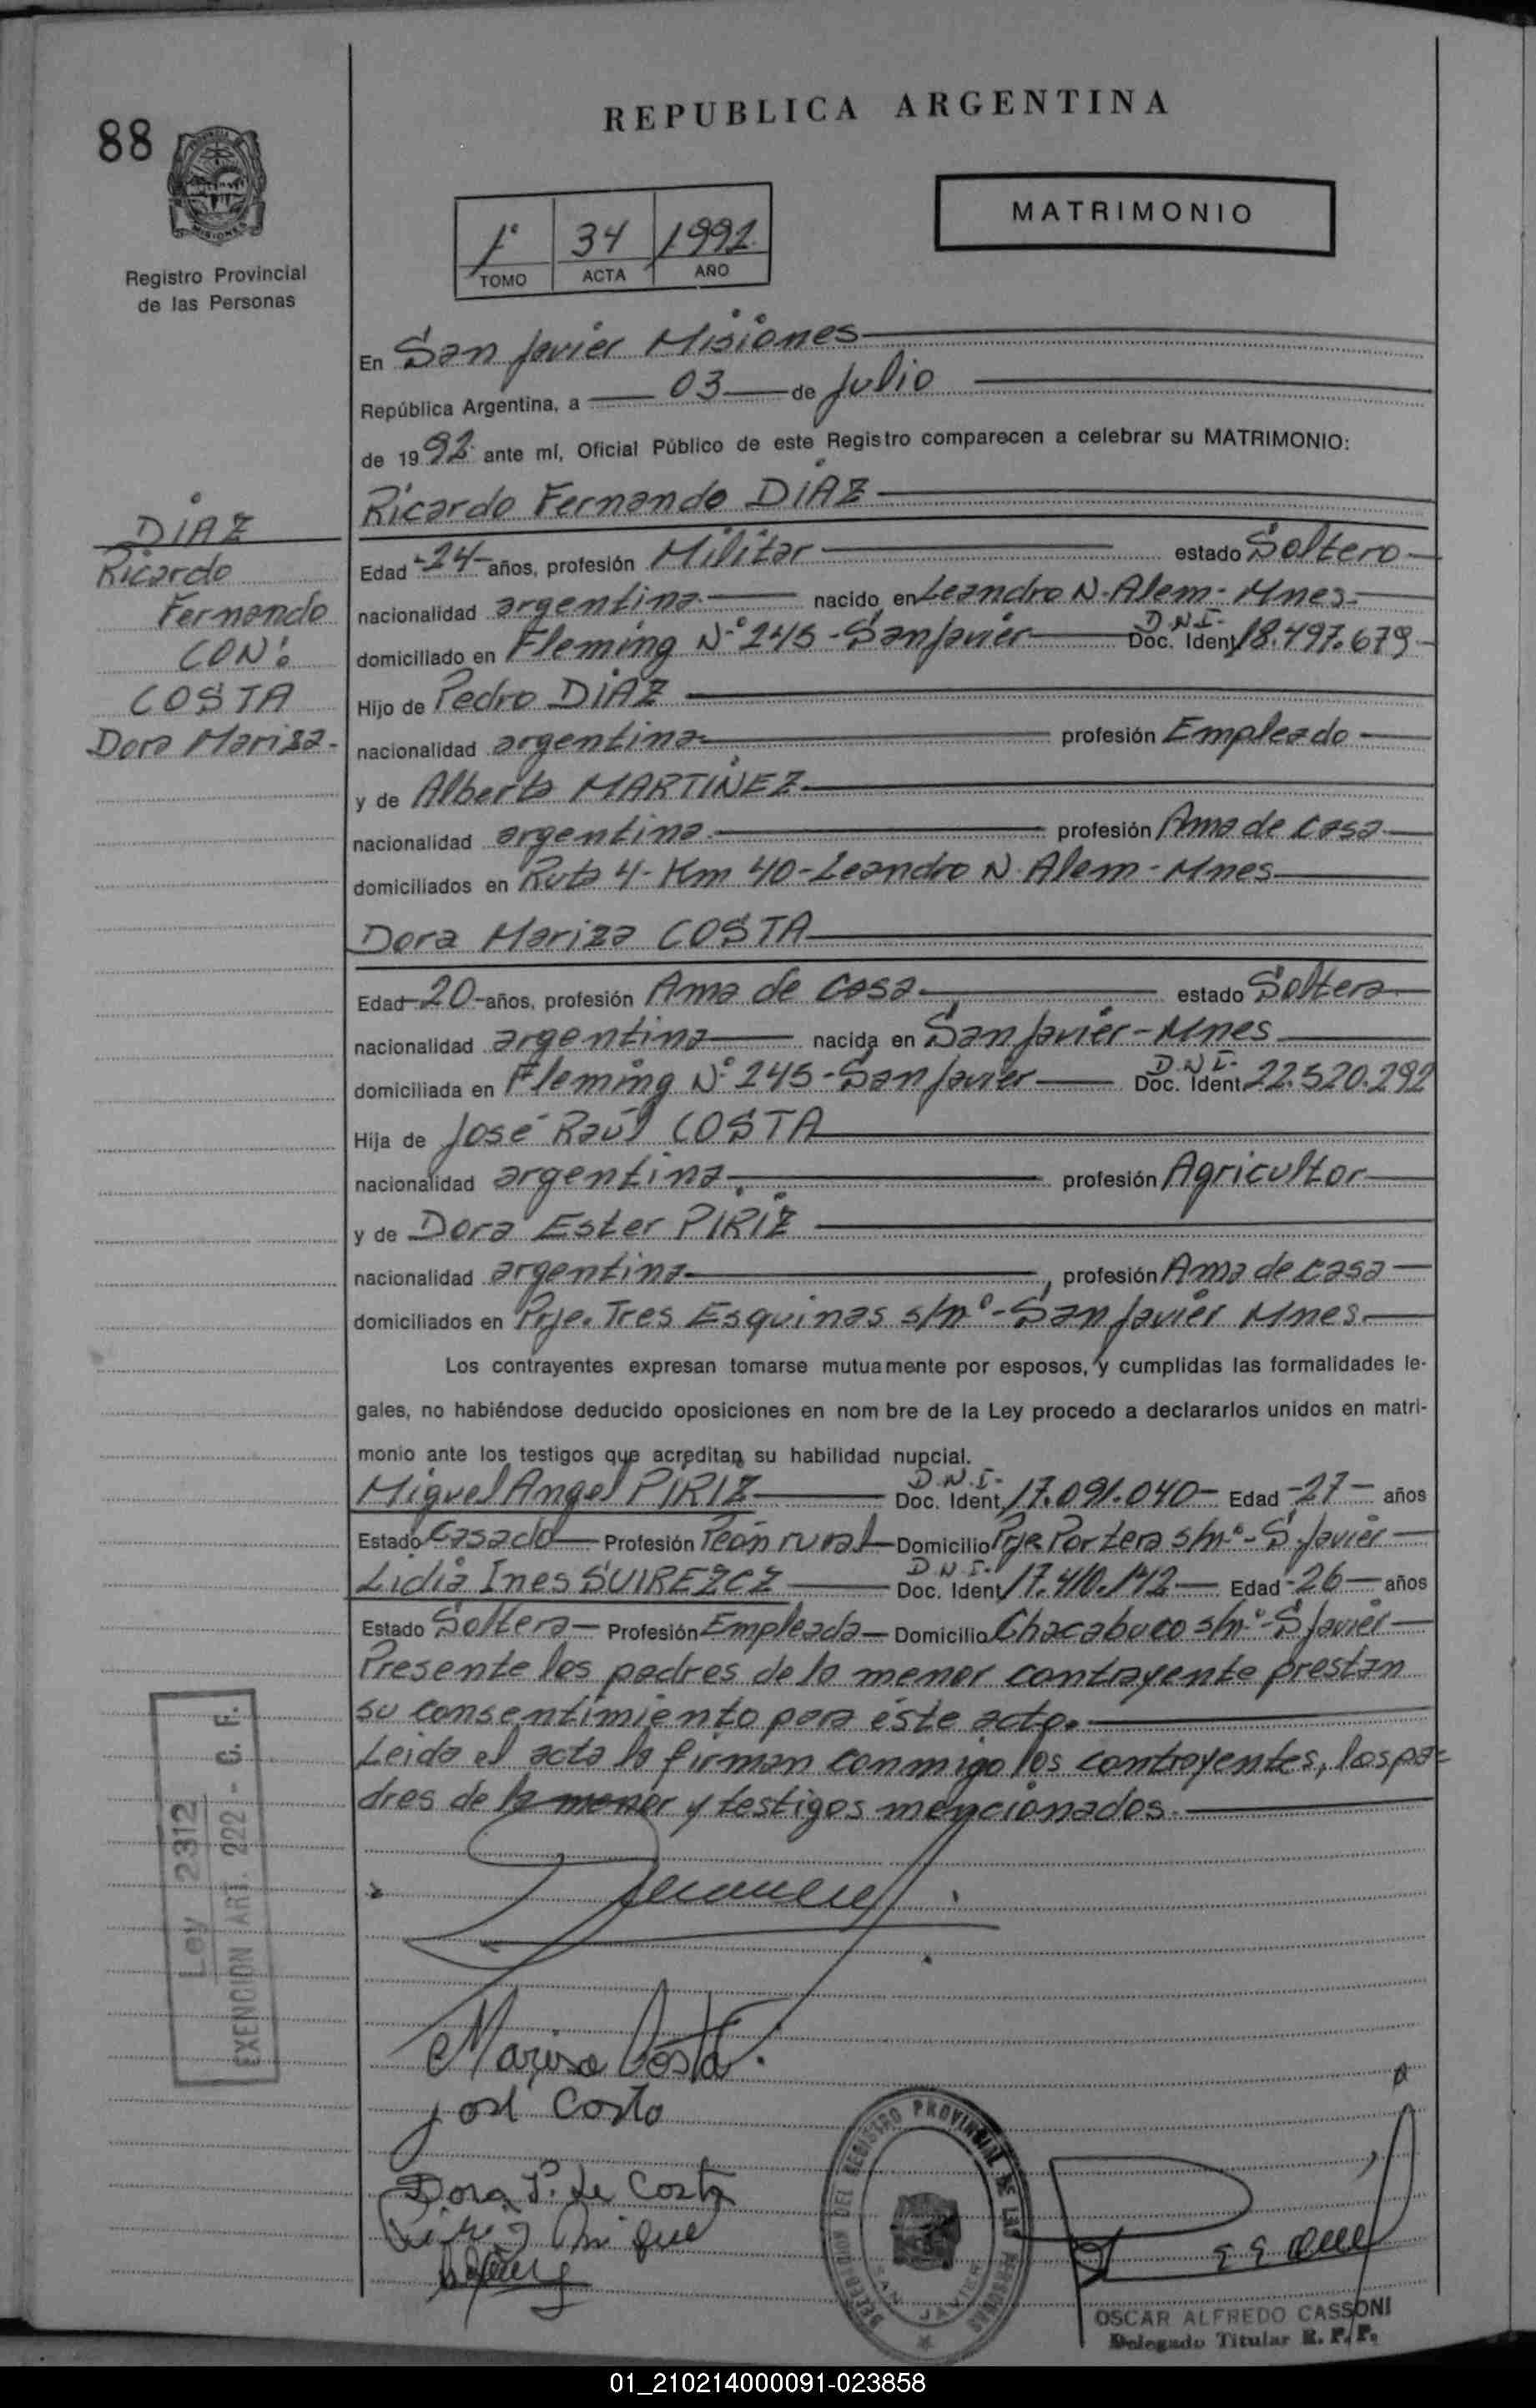 REPUBLICA ARGENTINA
88
MISIONES
Registro Provincial
de las Personas
1° 34 1992
TOMO ACTA AÑO
MATRIMONIO
En San Javier Misiones
República Argentina, a 03 de Julio
de 1992 ante mí, Oficial Público de este Registro comparecen a celebrar su MATRIMONIO:
Ricardo Fernando DIAZ
DIAZ
Ricardo
Fernando
CON:
COSTA
Dora Mariza-
Edad -24- años, profesión Militar estado Soltero
nacionalidad argentina nacido en Leandro N. Alem- Mnes-
domiciliado en Fleming N° 245 - San Javier D.N.I. Doc. Ident 18.497.679
Hijo de Pedro DIAZ
nacionalidad argentina profesión Empleado
y de Alberta MARTINEZ
nacionalidad argentina profesión Ama de casa
domiciliados en Ruta 4- Km 40-Leandro N. Alem- Mnes
Dora Mariza COSTA
Edad -20- años, profesión Ama de casa estado Soltera
nacionalidad argentina nacida en San Javier - Mnes
domiciliada en Fleming N° 245 - San Javier D.N.I. Doc. Ident 22.520.292
Hija de José Raúl COSTA
nacionalidad argentina profesión Agricultor
y de Dora Ester PIRIZ
nacionalidad argentina profesión Ama de casa
domiciliados en Pje. Tres Esquinas s/n° - San Javier Mnes
Los contrayentes expresan tomarse mutuamente por esposos, y cumplidas las formalidades le-
gales, no habiéndose deducido oposiciones en nom bre de la Ley procedo a declararlos unidos en matri-
monio ante los testigos que acreditan su habilidad nupcial.
Miguel Angel PIRIZ D.N.I. Doc. Ident 17.091.040 Edad -27- años
Estado Casado Profesión Peón rural Domicilio Pje Portera s/n° - S. Javier
Lidia Ines SUIREZCZ D.N.I. Doc. Ident 17.410.142 Edad -26- años
Estado Soltera Profesión Empleada Domicilio Chacabuco s/n° - S Javier
Presente los padres de la menor contrayente prestan
su consentimiento para éste acto.
Leida el acta la firman conmigo los contrayentes, los pa=
dres de la menor y testigos mencionados.
Ley 2312
EXENCION ART. 222 - C. F.
Mariza Costa
José Costa
Dora P. de Costa
DELEGACION DEL REGISTRO PROVINCIAL DE LAS PERSONAS
SAN JAVIER
OSCAR ALFREDO CASSONI
Delegado Titular R. P. P.
01_210214000091-023858